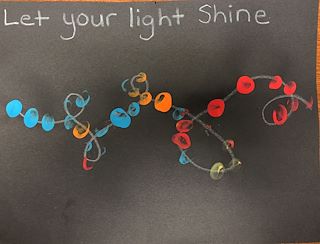 Let your light Shine